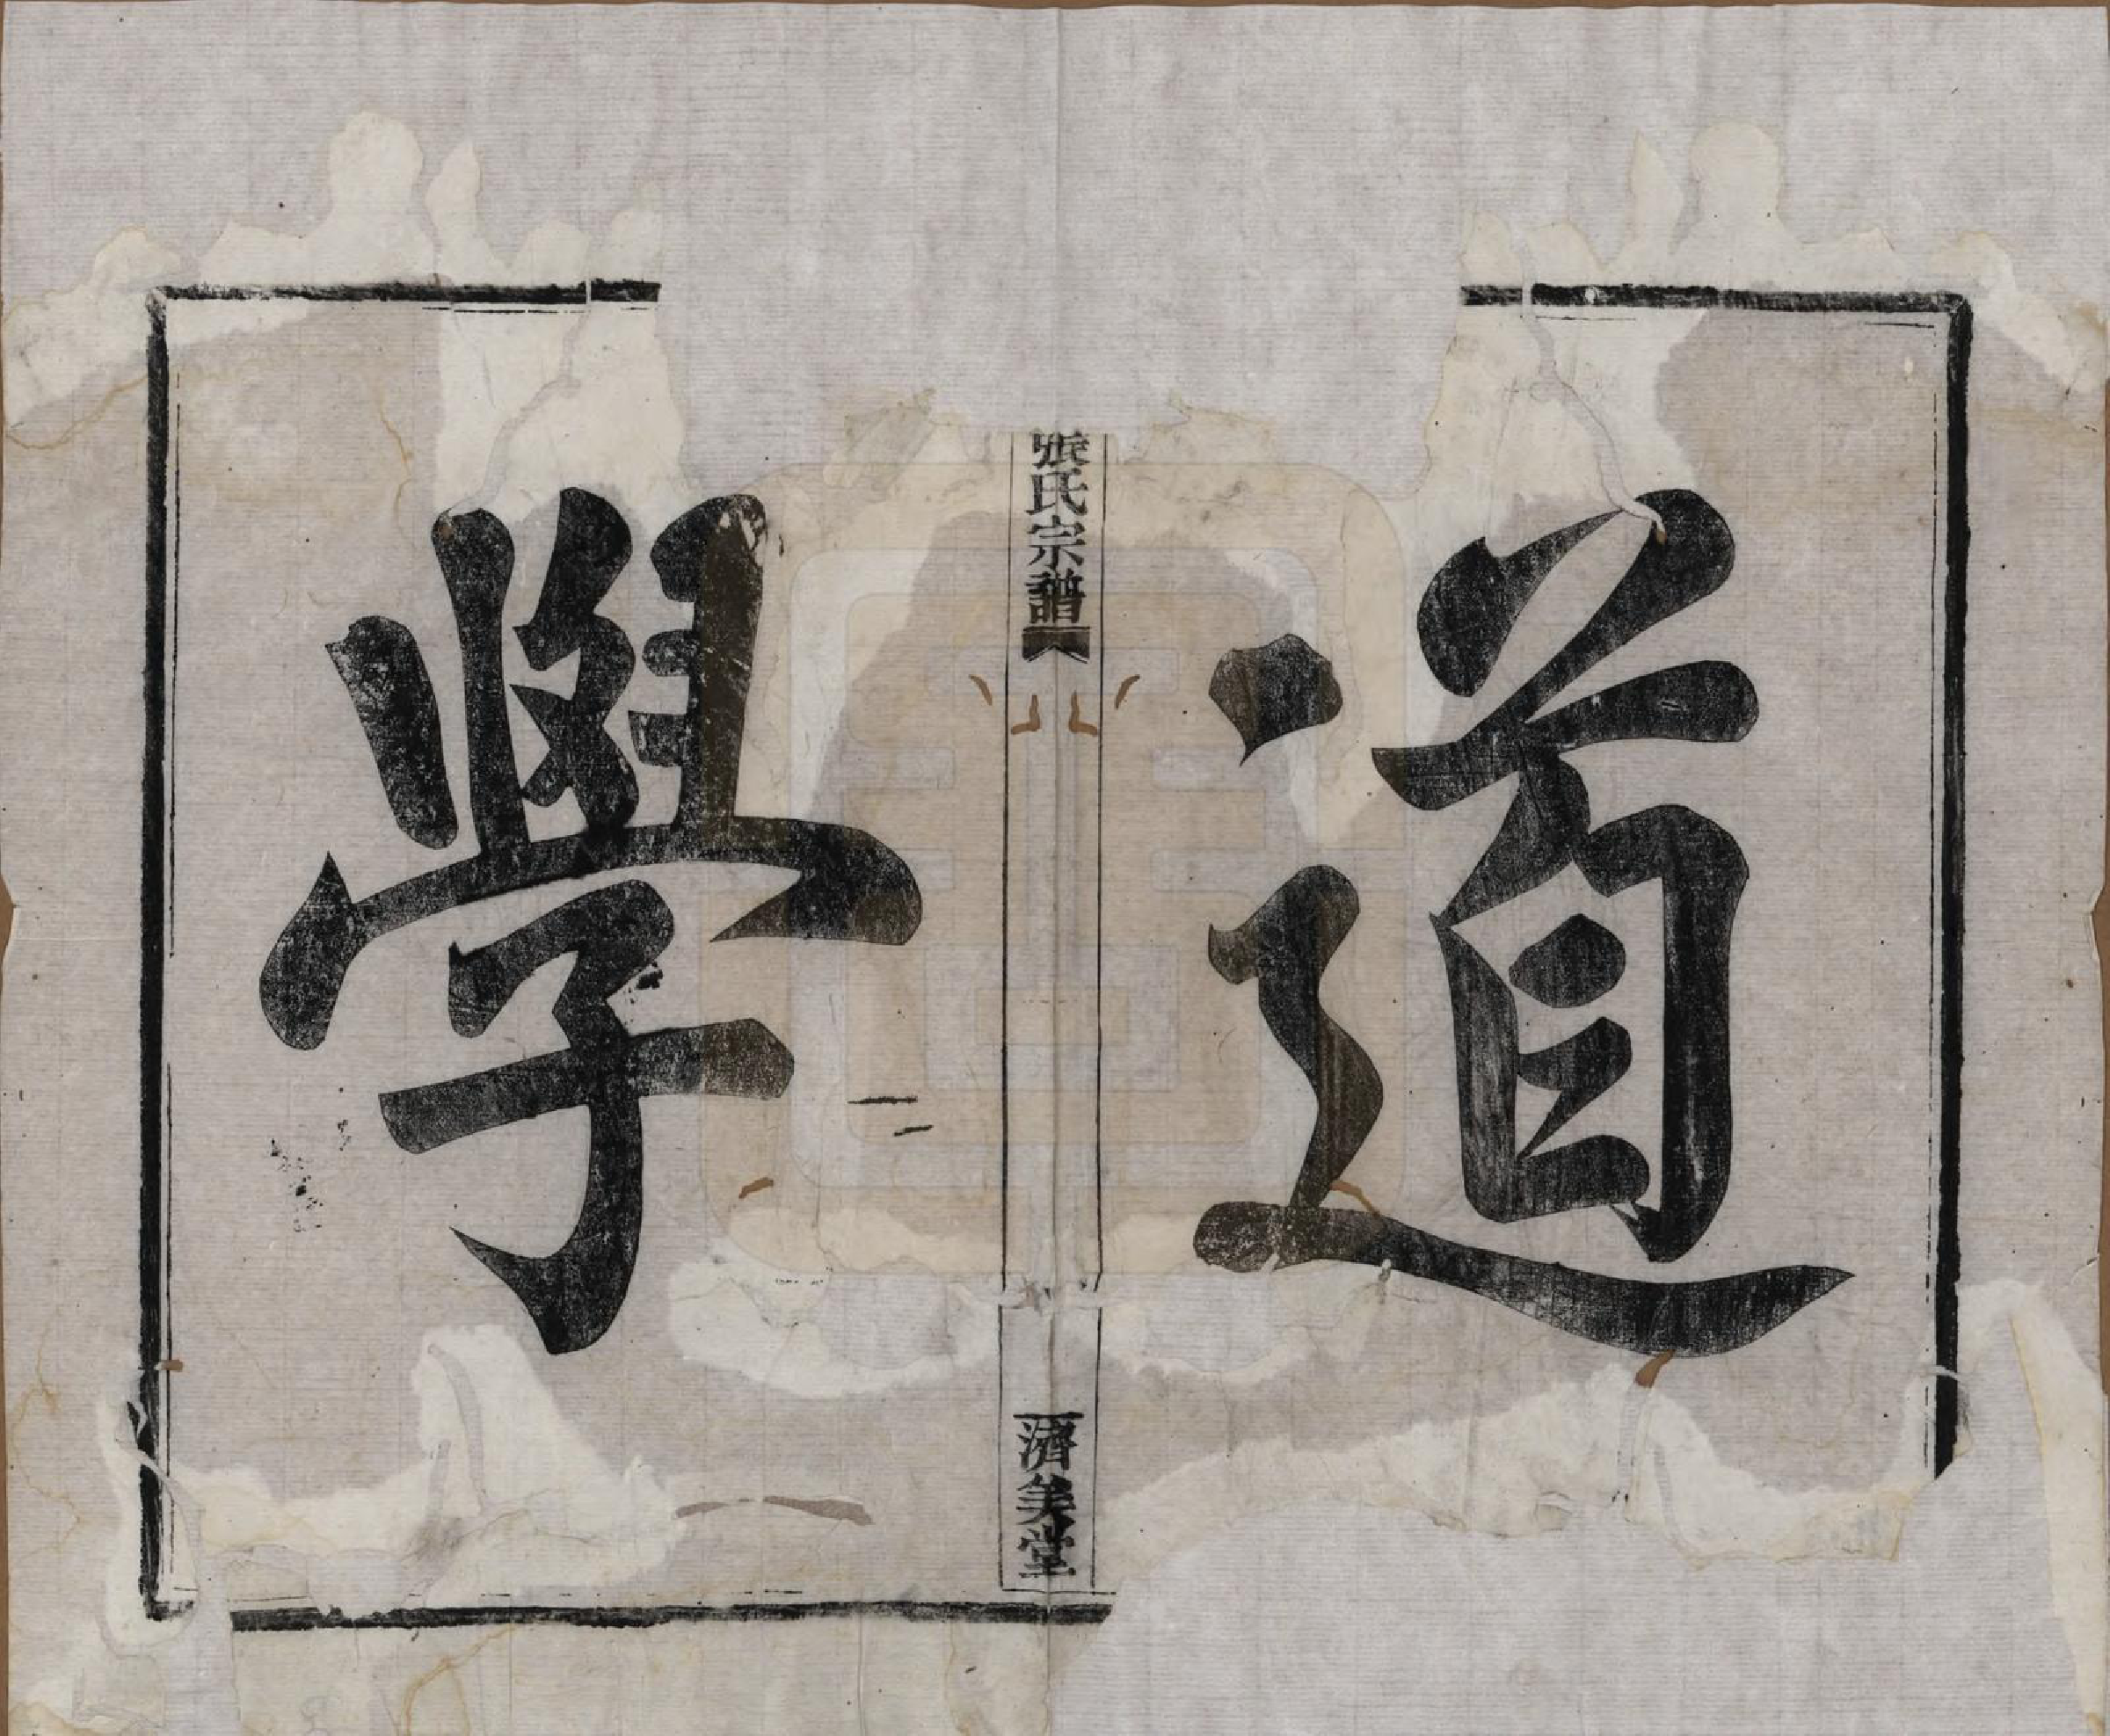 道
張氏宗譜
濟美堂
學